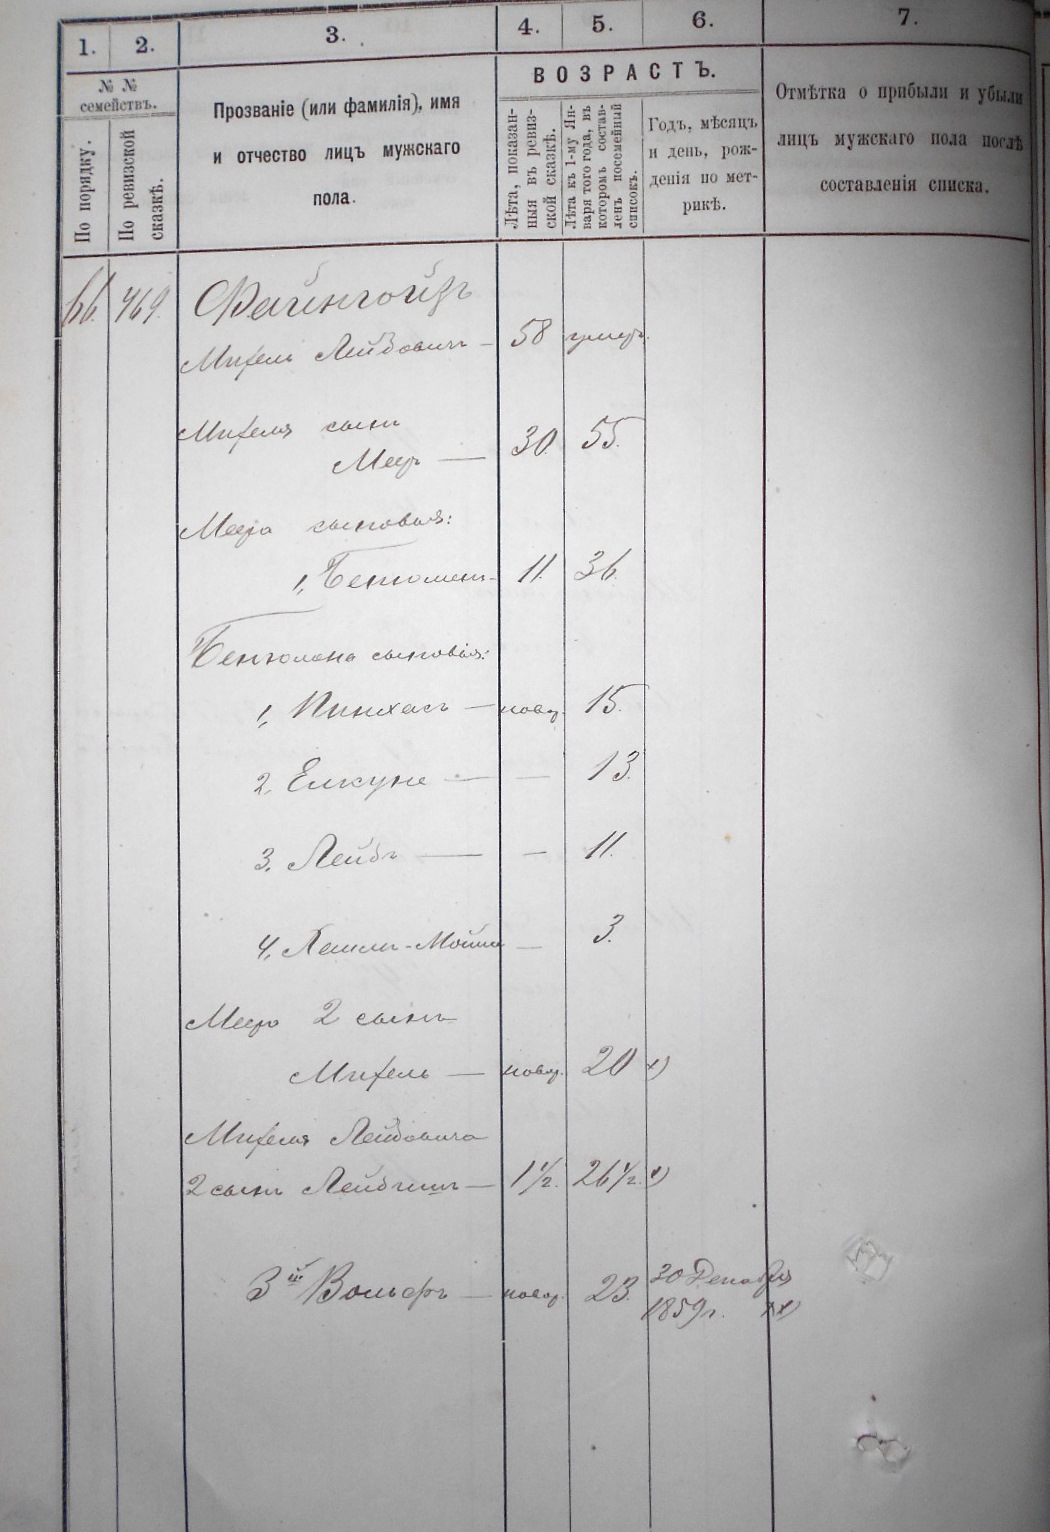 1. 2. 3. 4. 5. 6. 7.
№ № семействъ.
По порядку.
По ревизской сказкѣ.
Прозваніе (или фамилія), имя
и отчество лицъ мужскаго
пола.
ВОЗРАСТЪ.
Лѣта, показан-
ныя въ ревиз-
ской сказкѣ.
Лѣта къ 1-му Ян-
варя того года, въ
которомъ состав-
ленъ посемейный
списокъ.
Годъ, мѣсяцъ
и день, рож-
денія по мет-
рикѣ.
Отмѣтка о прибыли и убыли
лицъ мужскаго пола послѣ
составленія списка.
66. 469. Файнгойзъ
Михель Лейбовичъ — 58 умеръ.
Михеля сынъ
Меръ — 30. 55.
Меера сыновья:
1, Беньюминъ - 11. 36.
сыновья:
1, Пинхасъ — новор. 15.
2, Елкуне — — 13.
3, Лейбъ — — 11.
4, -Мойше — 3.
2 сынъ
Михель — новор. 20 х)
Михеля Лейбовича
2 сынъ Лейбишъ — 1 1/2. 26 1/2. х)
3й Вольфъ — новор. 23. 30 Декабря
1859 г. хх)